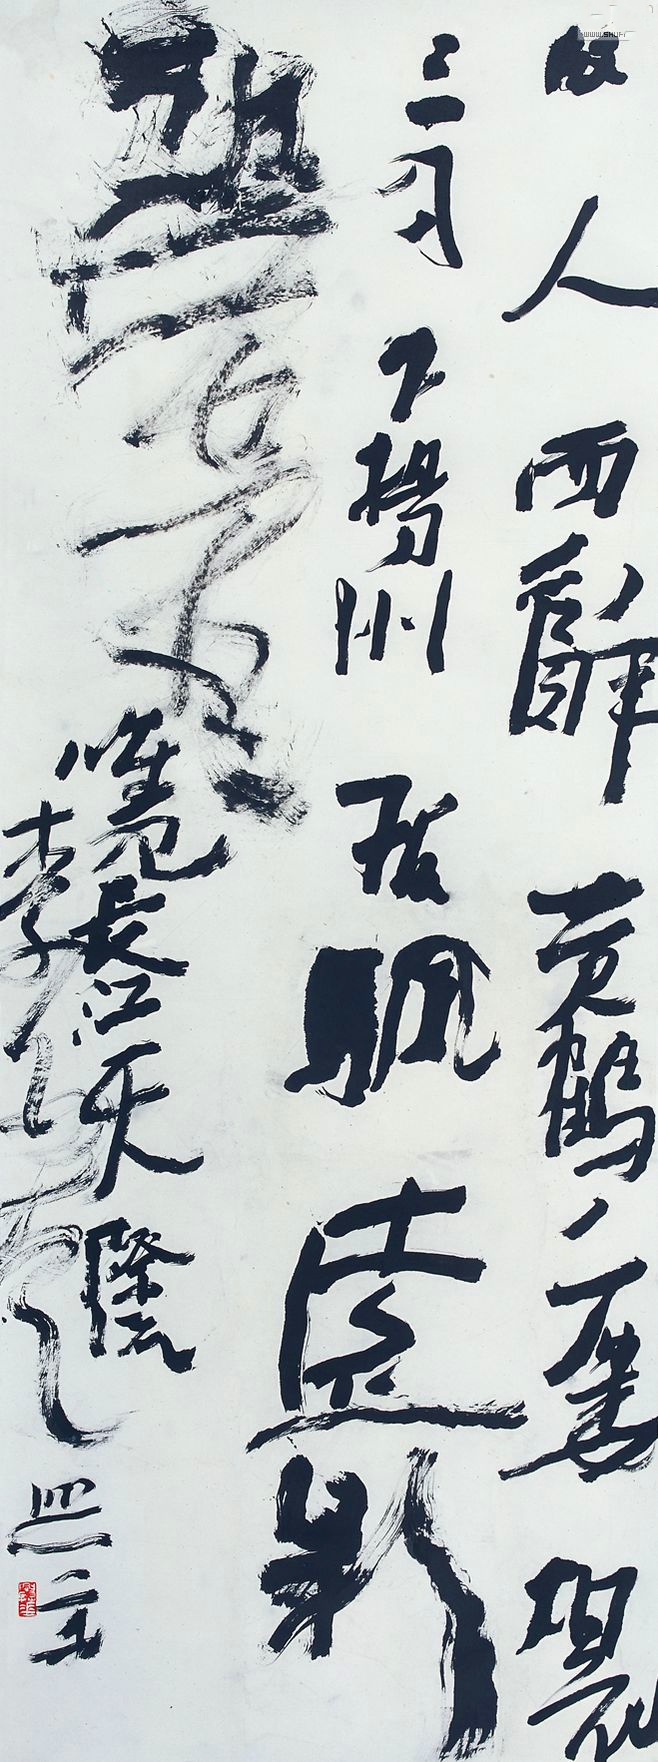 故人西辭黄鶴樓煙花
三月下揚州孤帆遠影
碧空盡
唯見長江天際流
李白詩
www.shufa